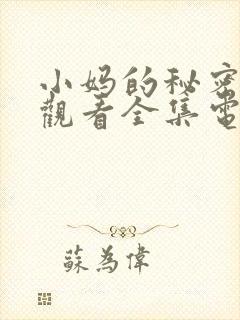 小妈的秘密
觀看全集電
蘇為偉